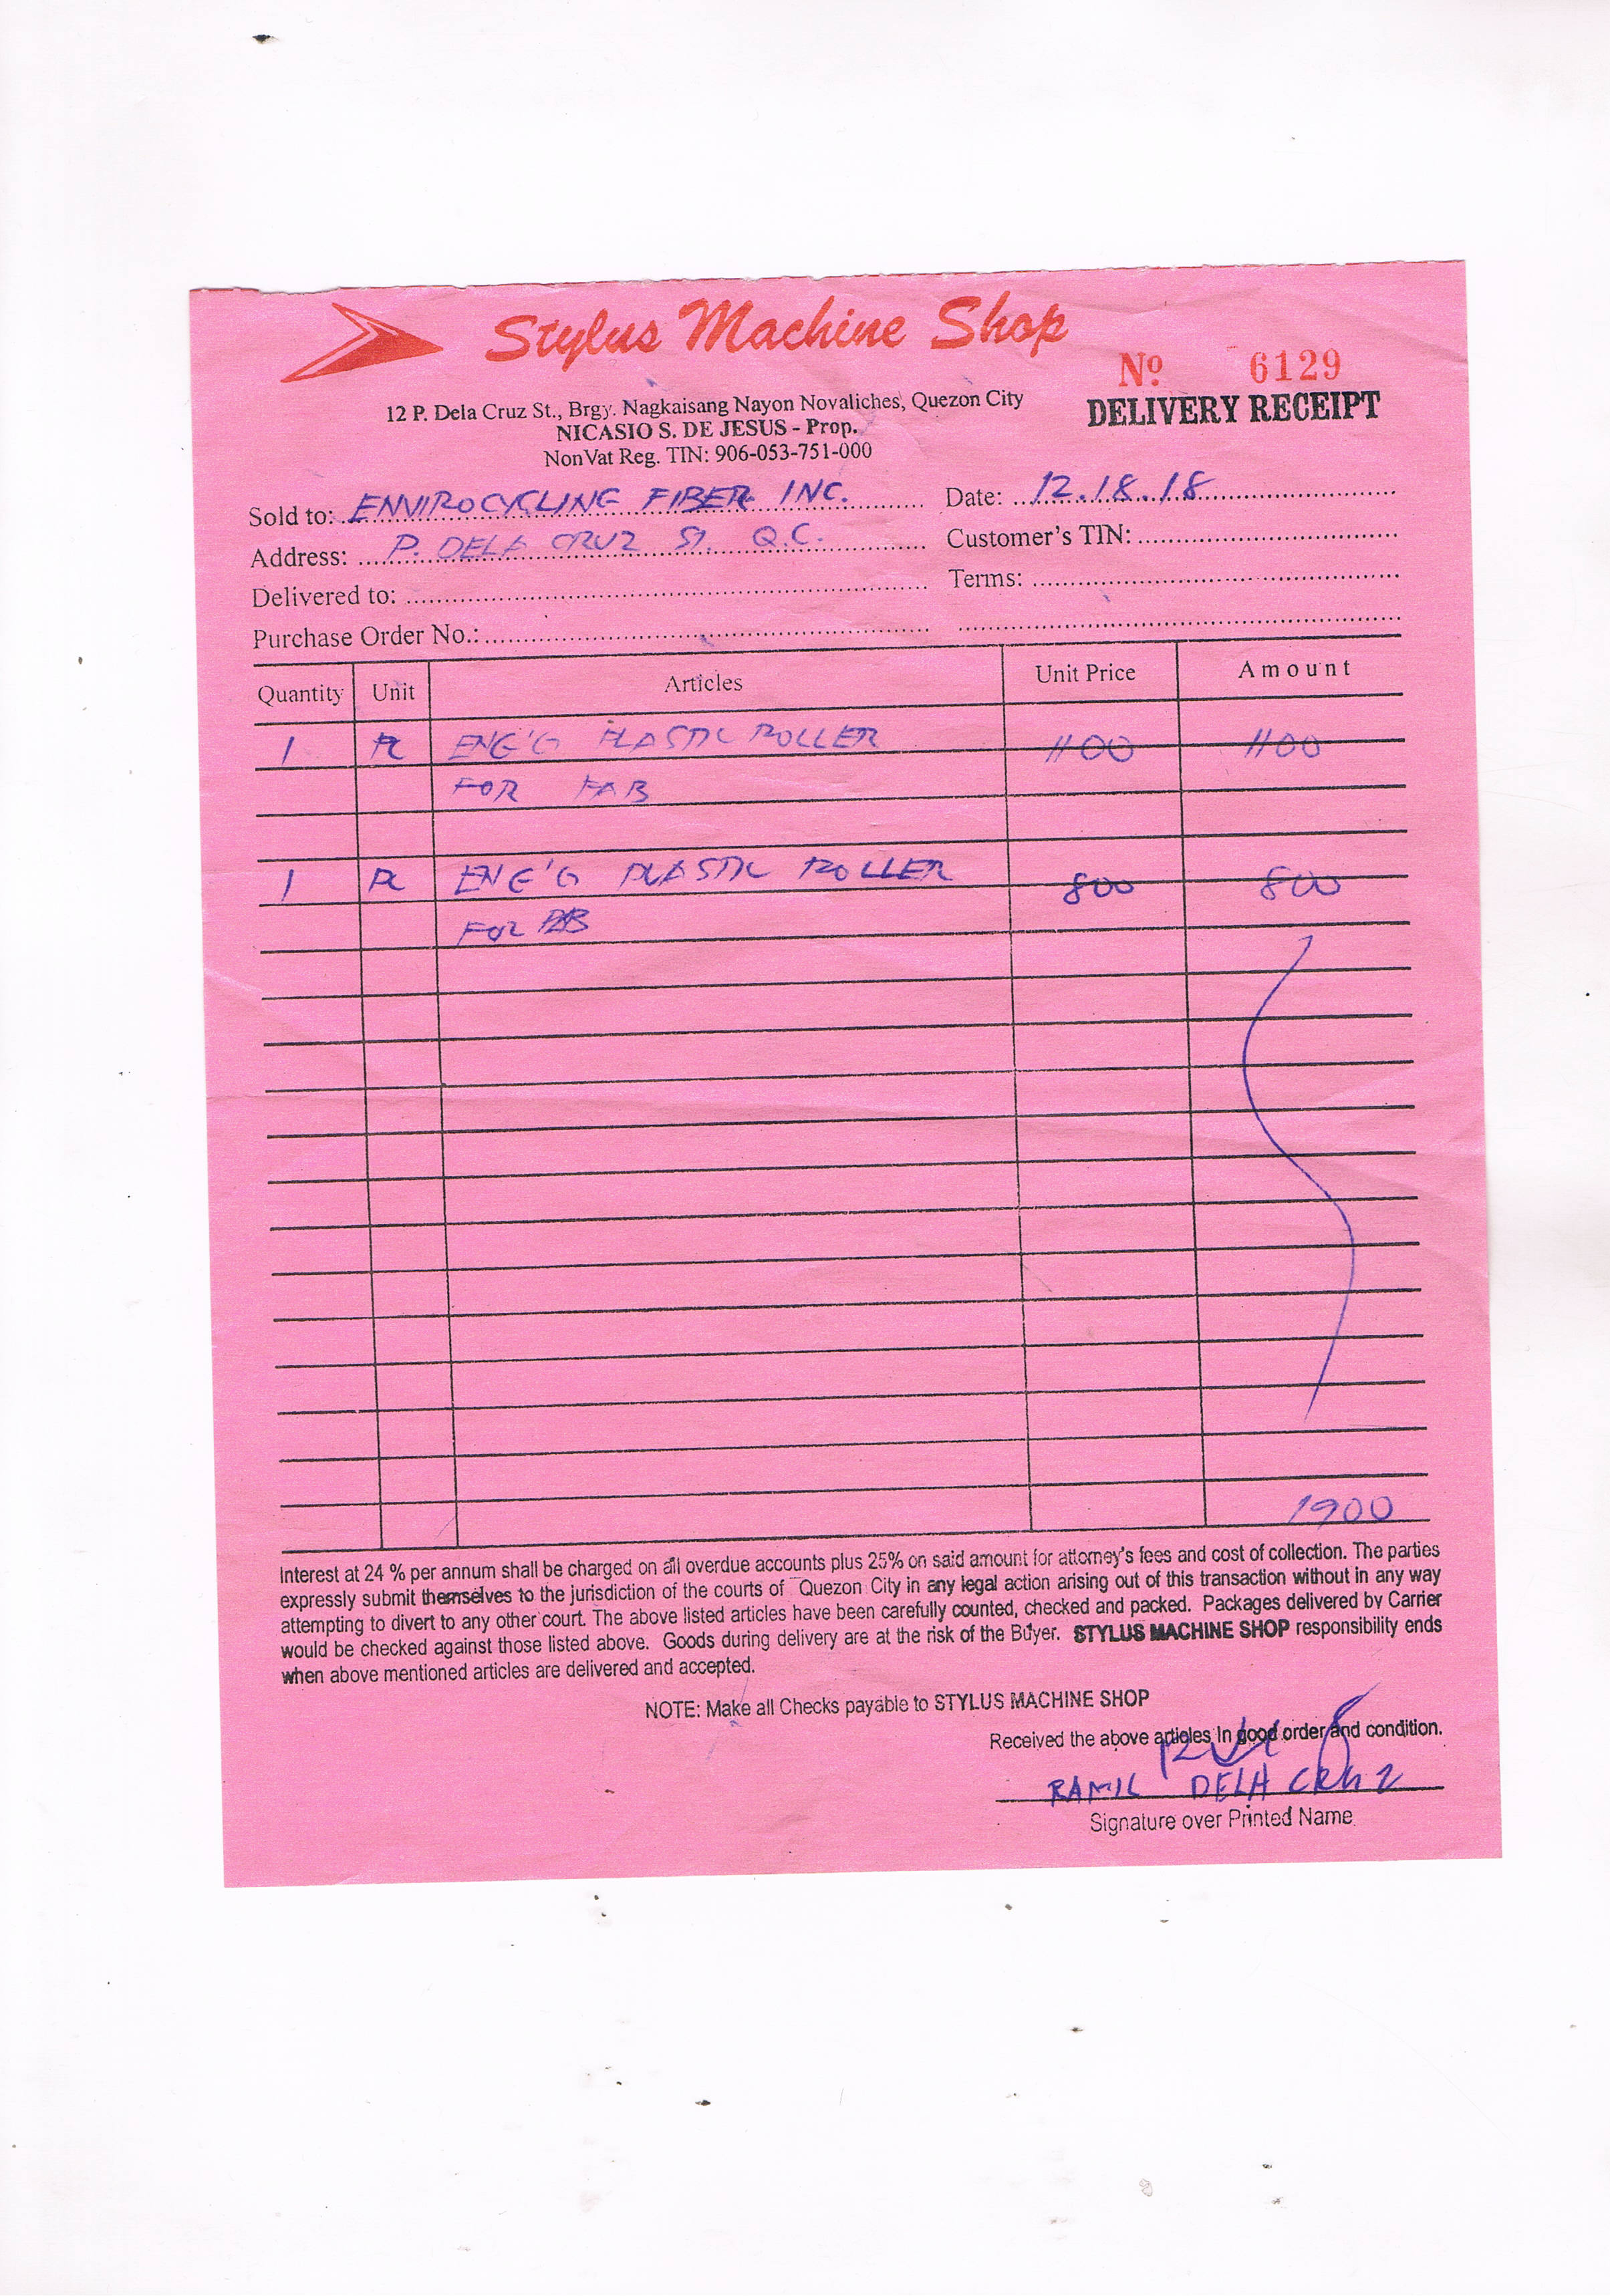 Stylus Machine Shop
Nº 6129
12 P. Dela Cruz St., Brgy. Nagkaisang Nayon Novaliches, Quezon City
DELIVERY RECEIPT
NICASIO S. DE JESUS - Prop.
NonVat Reg. TIN: 906-053-751-000
Sold to: ENVIROCYCLING FIBER INC. Date: 12.18.18
Address: P. DELA CRUZ ST. Q.C. Customer's TIN:
Delivered to: Terms:
Purchase Order No.:
Quantity Unit Articles Unit Price Amount
1 PC ENG'G PLASTIC ROLLER 1100 1100
FOR FAB
1 PC ENG'G PLASTIC ROLLER 800 800
FOR
1900
Interest at 24 % per annum shall be charged on all overdue accounts plus 25% on said amount for attorney's fees and cost of collection. The parties
expressly submit themselves to the jurisdiction of the courts of Quezon City in any legal action arising out of this transaction without in any way
attempting to divert to any other court. The above listed articles have been carefully counted, checked and packed. Packages delivered by Carrier
would be checked against those listed above. Goods during delivery are at the risk of the Buyer. STYLUS MACHINE SHOP responsibility ends
when above mentioned articles are delivered and accepted.
NOTE: Make all Checks payable to STYLUS MACHINE SHOP
Received the above articles In good order and condition.
RAMIL DELA CRUZ
Signature over Printed Name